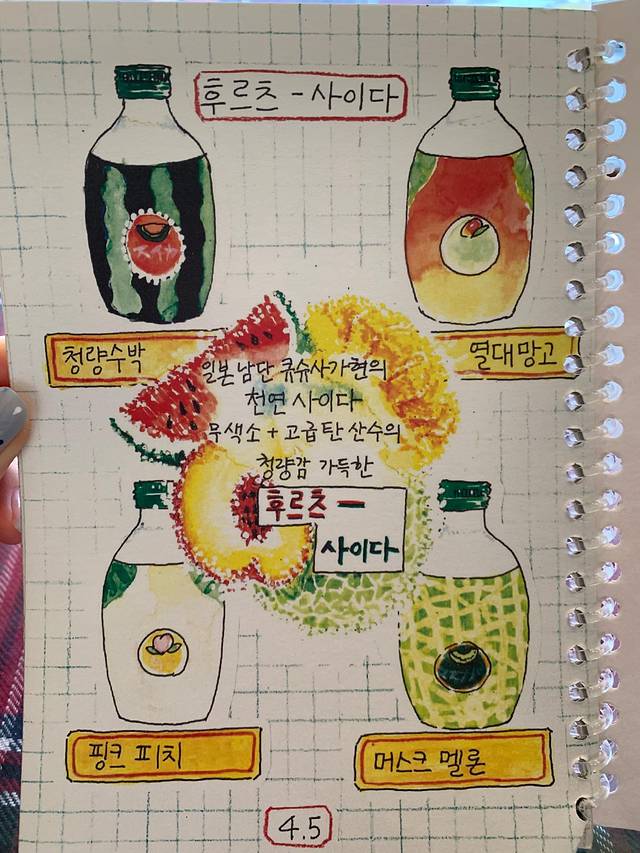 후르츠 - 사이다
청량수박
열대망고
일본 남단 큐슈사가현의
천연 사이다
무색소 + 고급탄산수의
청량감 가득한
후르츠 -
사이다
핑크 피치
머스크 멜론
4.5